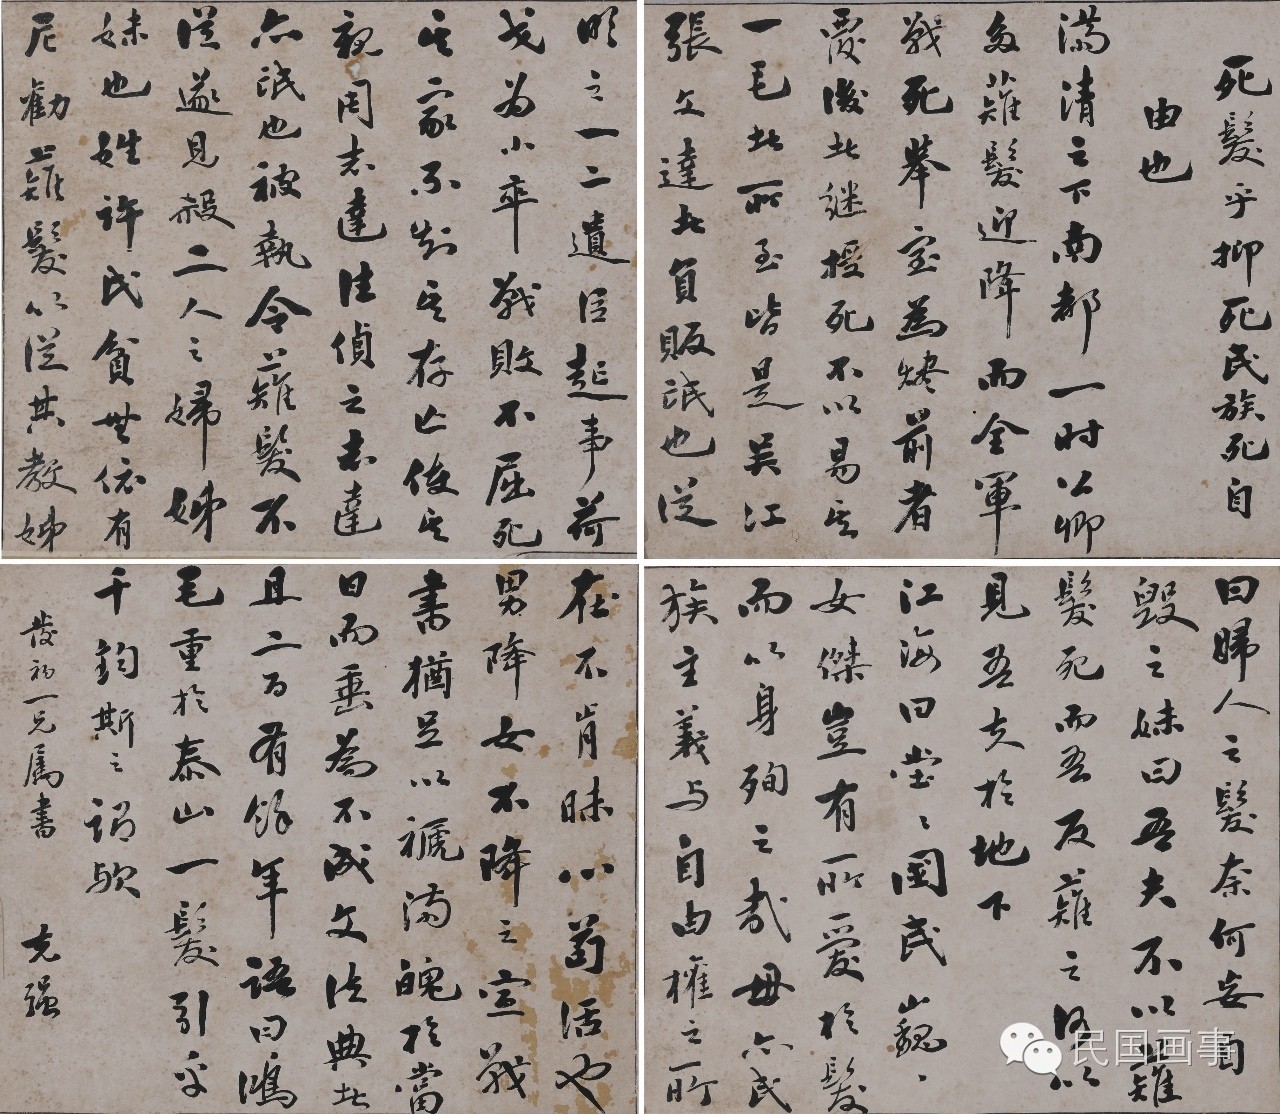 死髮乎抑死民族死自
由也
满清之下南都一时公卿
多薙髮迎降而全軍
戰死舉室為燼前者
覆後者继援死不以易其
一毛者所至皆是吴江
張文達者負販氓也從
明之一二遺臣起事荷
戈为小卒戰敗不屈死
其家不知其存亡使其
親周志達往偵之志達
亦氓也被執令薙髮不
從遂見殺二人之婦姊
妹也姓許氏貧無依有
尼勸薙髮以從其教姊
曰婦人之髮奈何妄自
毀之妹曰吾夫不以薙
髮死而吾反薙之何以
見吾夫於地下
江海曰堂々國民巍々
女傑豈有所愛於髮
而以身殉之哉毋亦民
族主義与自由權之所
在不肯昧心苟活也
男降女不降之宣戰
書猶足以褫满魄於當
日而垂為不成文法典者
且二百有餘年語曰鴻
毛重於泰山一髮引乎
千鈞斯之謂歟
發初一兄属書
克强
民国画事